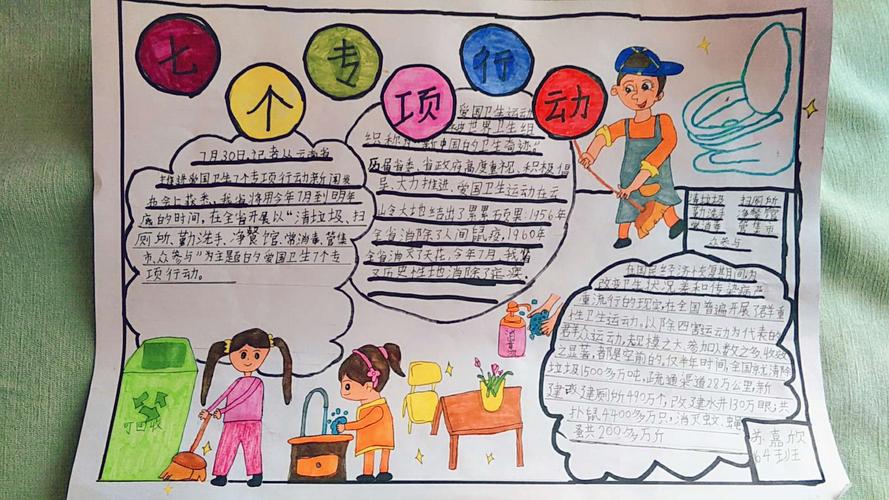 七个专项行动
7月30日,记者从云南省
推进爱国卫生7个专项行动新闻发
布会上获悉,我省将用今年7月到明年
底的时间,在全省开展以“清垃圾、扫
厕所、勤洗手、净餐馆、常消毒、管集
市、众参与”为主题的爱国卫生7个专
项行动。
爱国卫生运动
被世界卫生组
织称作“新中国的卫生奇迹”
历届省委、省政府高度重视、积极倡
导、大力推进、爱国卫生运动在云
岭大地结出了累累硕果:1956年
全省消除了人间鼠疫,1960年
全省消灭了天花,今年7月,我省
又历史性地消除了疟疾。
清垃圾 扫厕所
勤洗手 净餐馆
常消毒 管集市
众参与
在国民经济恢复期间,为
改变卫生状况差和传染病严
重流行的现实,在全国普遍开展了群众
性卫生运动。以除四害运动为代表的
群众运动,规模之大,参加人数之多,收效
之显著,都是空前的,仅半年时间,全国就清除
垃圾1500多万吨,疏通渠道28万公里,新
建改建厕所490万个,改了建水井130万眼;共
扑鼠4400多万只,消灭蚊、蝇
蚤共200多万斤
消毒
可回收
苏嘉欣
64班